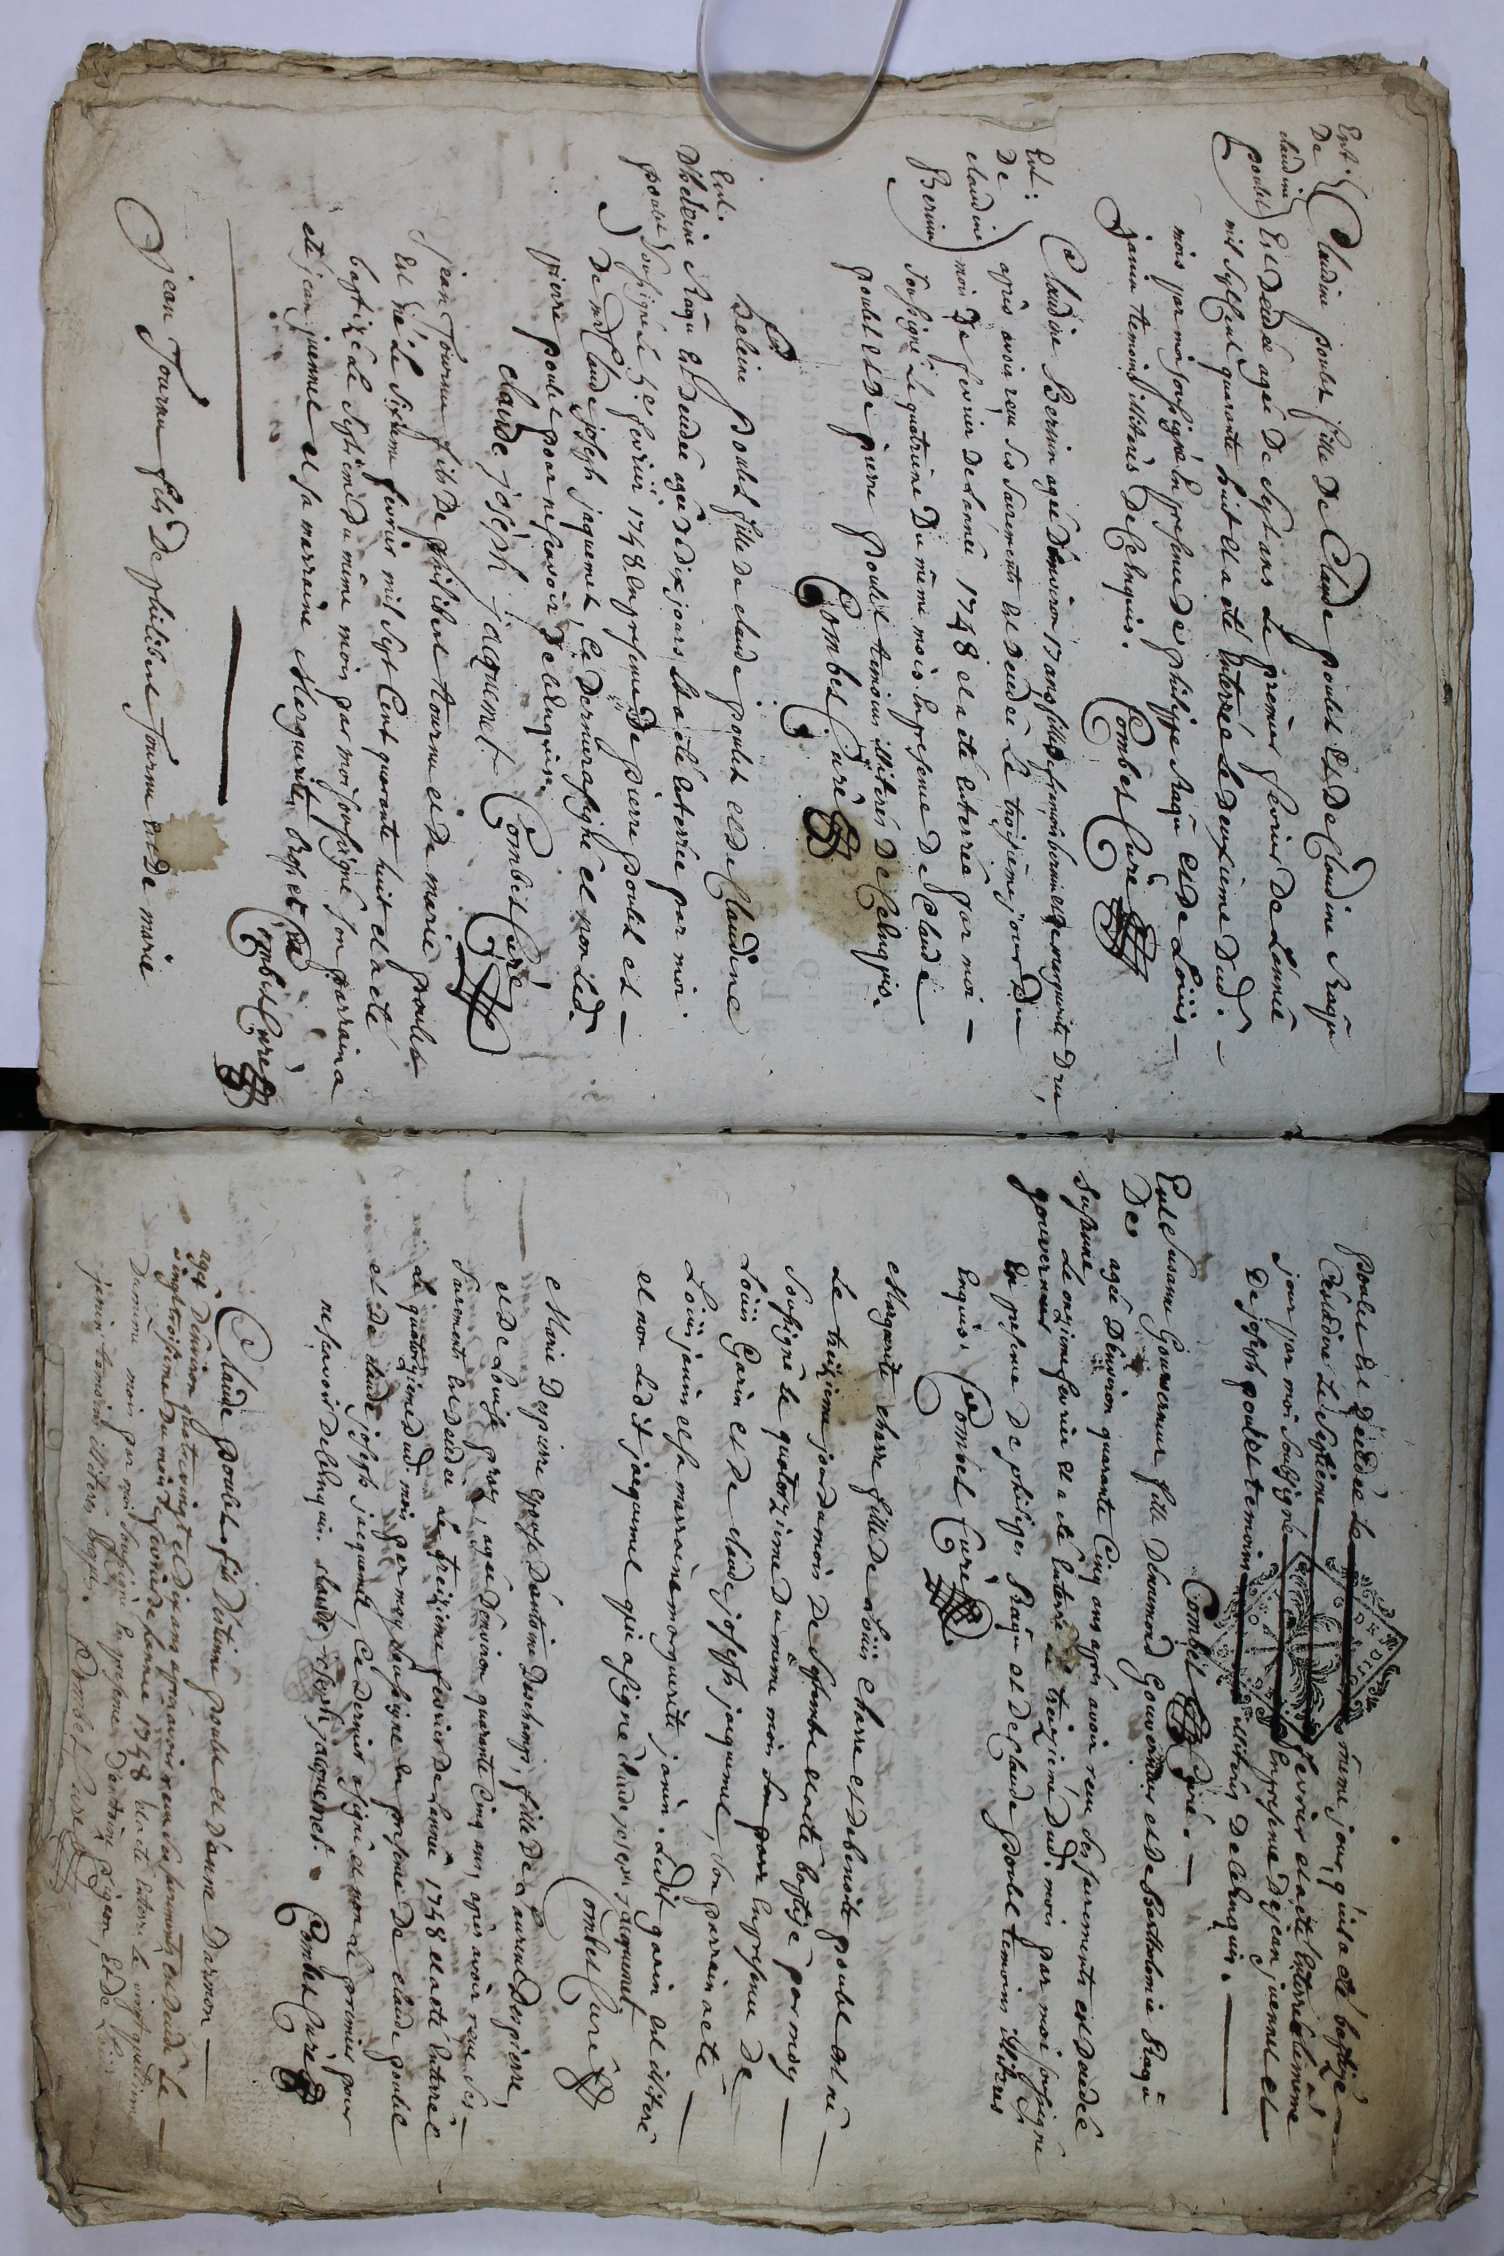 Ent.
De
claudine
poulet
Claudine poulet fille De Claude poulet et De Claudine Ragu
Est Decedée agée De Sept ans Le premier fevrier De L'année
mil Sept Cent quarante huit et a été Enterrée Le Deuxième Dud.
mois par moi soussigné En presence De philippe Ragu et De Loüis
janin temoins illiterés De Ce Enquis. Combet Curé
Ent.
De
claudine
Bernin
Claudine Bernin agée D'environ 17 ans fille De feu bernin et De marguerite Dru,
après avoir reçu ses sacrements est Decedée Le troisième jour Du
mois De fevrier De L'année 1748 et a été Enterrée par moi
soussigné Le quatrième Du même mois En presence De Claude
poulet et De pierre poulet temoins illiterés De Ce Enquis.
Combet Curé
Ent.
D'heleine
poulet
heleine poulet fille De claude poulet et De Claudine
Ragu est Decedée agée De Dix jours Et a été Enterrée par moi
soussigné Le 5e fevrier 1748 En presence De pierre poulet et
De me Claude joseph jaquemet, Ce Dernier a signé et non Led.
pierre poulet pour ne sçavoir De ce Enquis.
claude joseph jaquemet Combet Curé
jean Tournu fils De philibert tournu et De marie poulet
Est né Le Sixième fevrier mil Sept Cent quarante huit et a été
baptizé Le Septième Du même mois par moi soussigné Son parrain a
été jean juennet et sa marraine Marguerite
Combet Curé
jean Tournu fils De philibert Tournu et De marie
poulet Est Decedé Le même jour qu'il a été baptizé
Le Septième fevrier et a été Enterré Le même
jour par moi soussigné En presence De jean juennet et
De joseph poulet temoins illiterés De ce Enquis.
Combet Curé
Ent
De
Susanne
gouverneur
Susanne Gouverneur fille D'eumond Gouverneur et De Barthelemie Ragu
agée D'environ quarante Cinq ans après avoir reçu Ses sacrements est Decedée
Le onzième fevrier et a été Enterrée Le treizième Dud. mois par moi soussigné
En presence De philippe Ragu et De Claude poulet temoins illiterés
Enquis. Combet Curé
Marguerite charre fille De Loüis charre et De benoite poulet est née
Le treizième jour du mois De Septembre et a été baptisé par moy
soussigné Le quatorzième Du même mois En presence De
Loüis Garin et De claude joseph jaquemet, Son parrain a été
Loüis janin et sa marraine marguerite janin. Ledit garin est illiteré
et non Ledit jaquemet qui a signé claude joseph jaquemet
Combet Curé
Marie Despierre epouse D'antoine Deschamps, fille De Laurent Despierre,
et De Louise, agée D'environ quarante Cinq ans, après avoir reçu Ses
Sacrements est Decedée Le treizième fevrier De L'année 1748 et a été Enterrée
Le quatorzième Dud. mois par moy soussigné En presence De claude poulet
et De claude joseph jacquemet, Ce Dernier a signé et non Le premier pour
ne sçavoir De Ce Enquis. claude joseph jaquemet.
Combet Curé
Claude poulet fils D'Estienne poulet et D'anne Darmon
agé D'environ quatre vingt et Dix ans après avoir reçu Ses sacrements est Decedé Le
vingt troisième Du mois De fevrier De L'année 1748 et a été Enterré Le vingt quatrième
Du même mois par moi soussigné En presence D'antoine Pigeon, Et De Loüis
janin temoins illiterés Enquis. Combet Curé